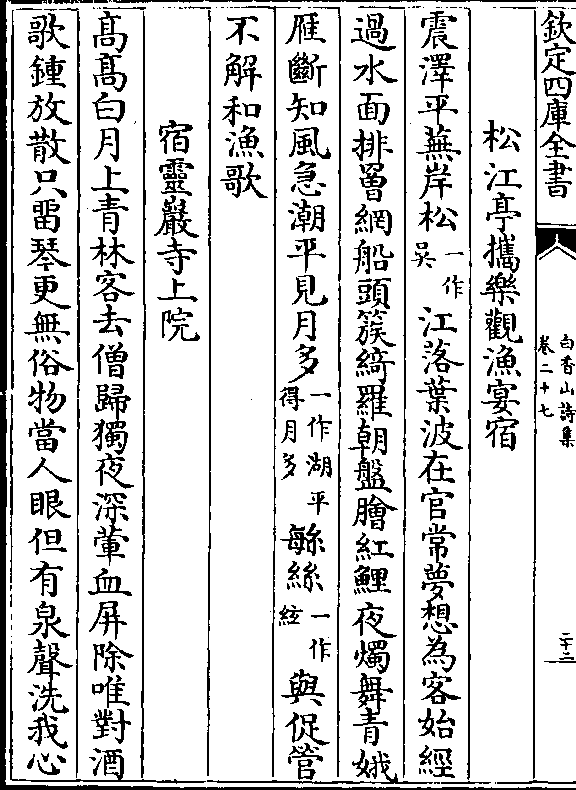 欽定四庫全書
白香山詩集
卷二十七
二十二
松江亭攜樂觀漁宴宿
震澤平蕪岸松一作吳江落葉波在官常夢想為客始經
過水面排罾網船頭簇綺羅朝盤膾紅鯉夜燭舞青娥
雁斷知風急潮平見月多一作湖平得月多繇絲一作絃與促管
不解和漁歌
宿靈巖寺上院
髙髙白月上青林客去僧歸獨夜深葷血屏除唯對酒
歌鍾放散只畱琴更無俗物當人眼但有泉聲洗我心